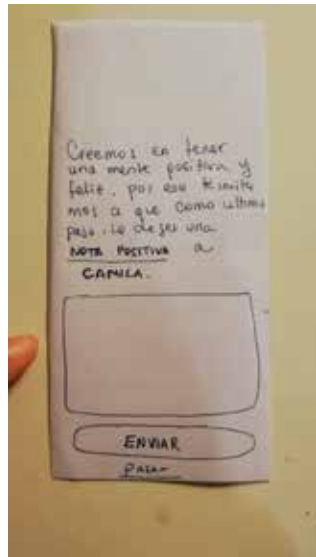 Creemos en tener
una mente positiva y
feliz, por eso te invita
mos a que como ultimo
paso, le dejes una
NOTA POSITIVA a
CAMILA.
ENVIAR
PASAR